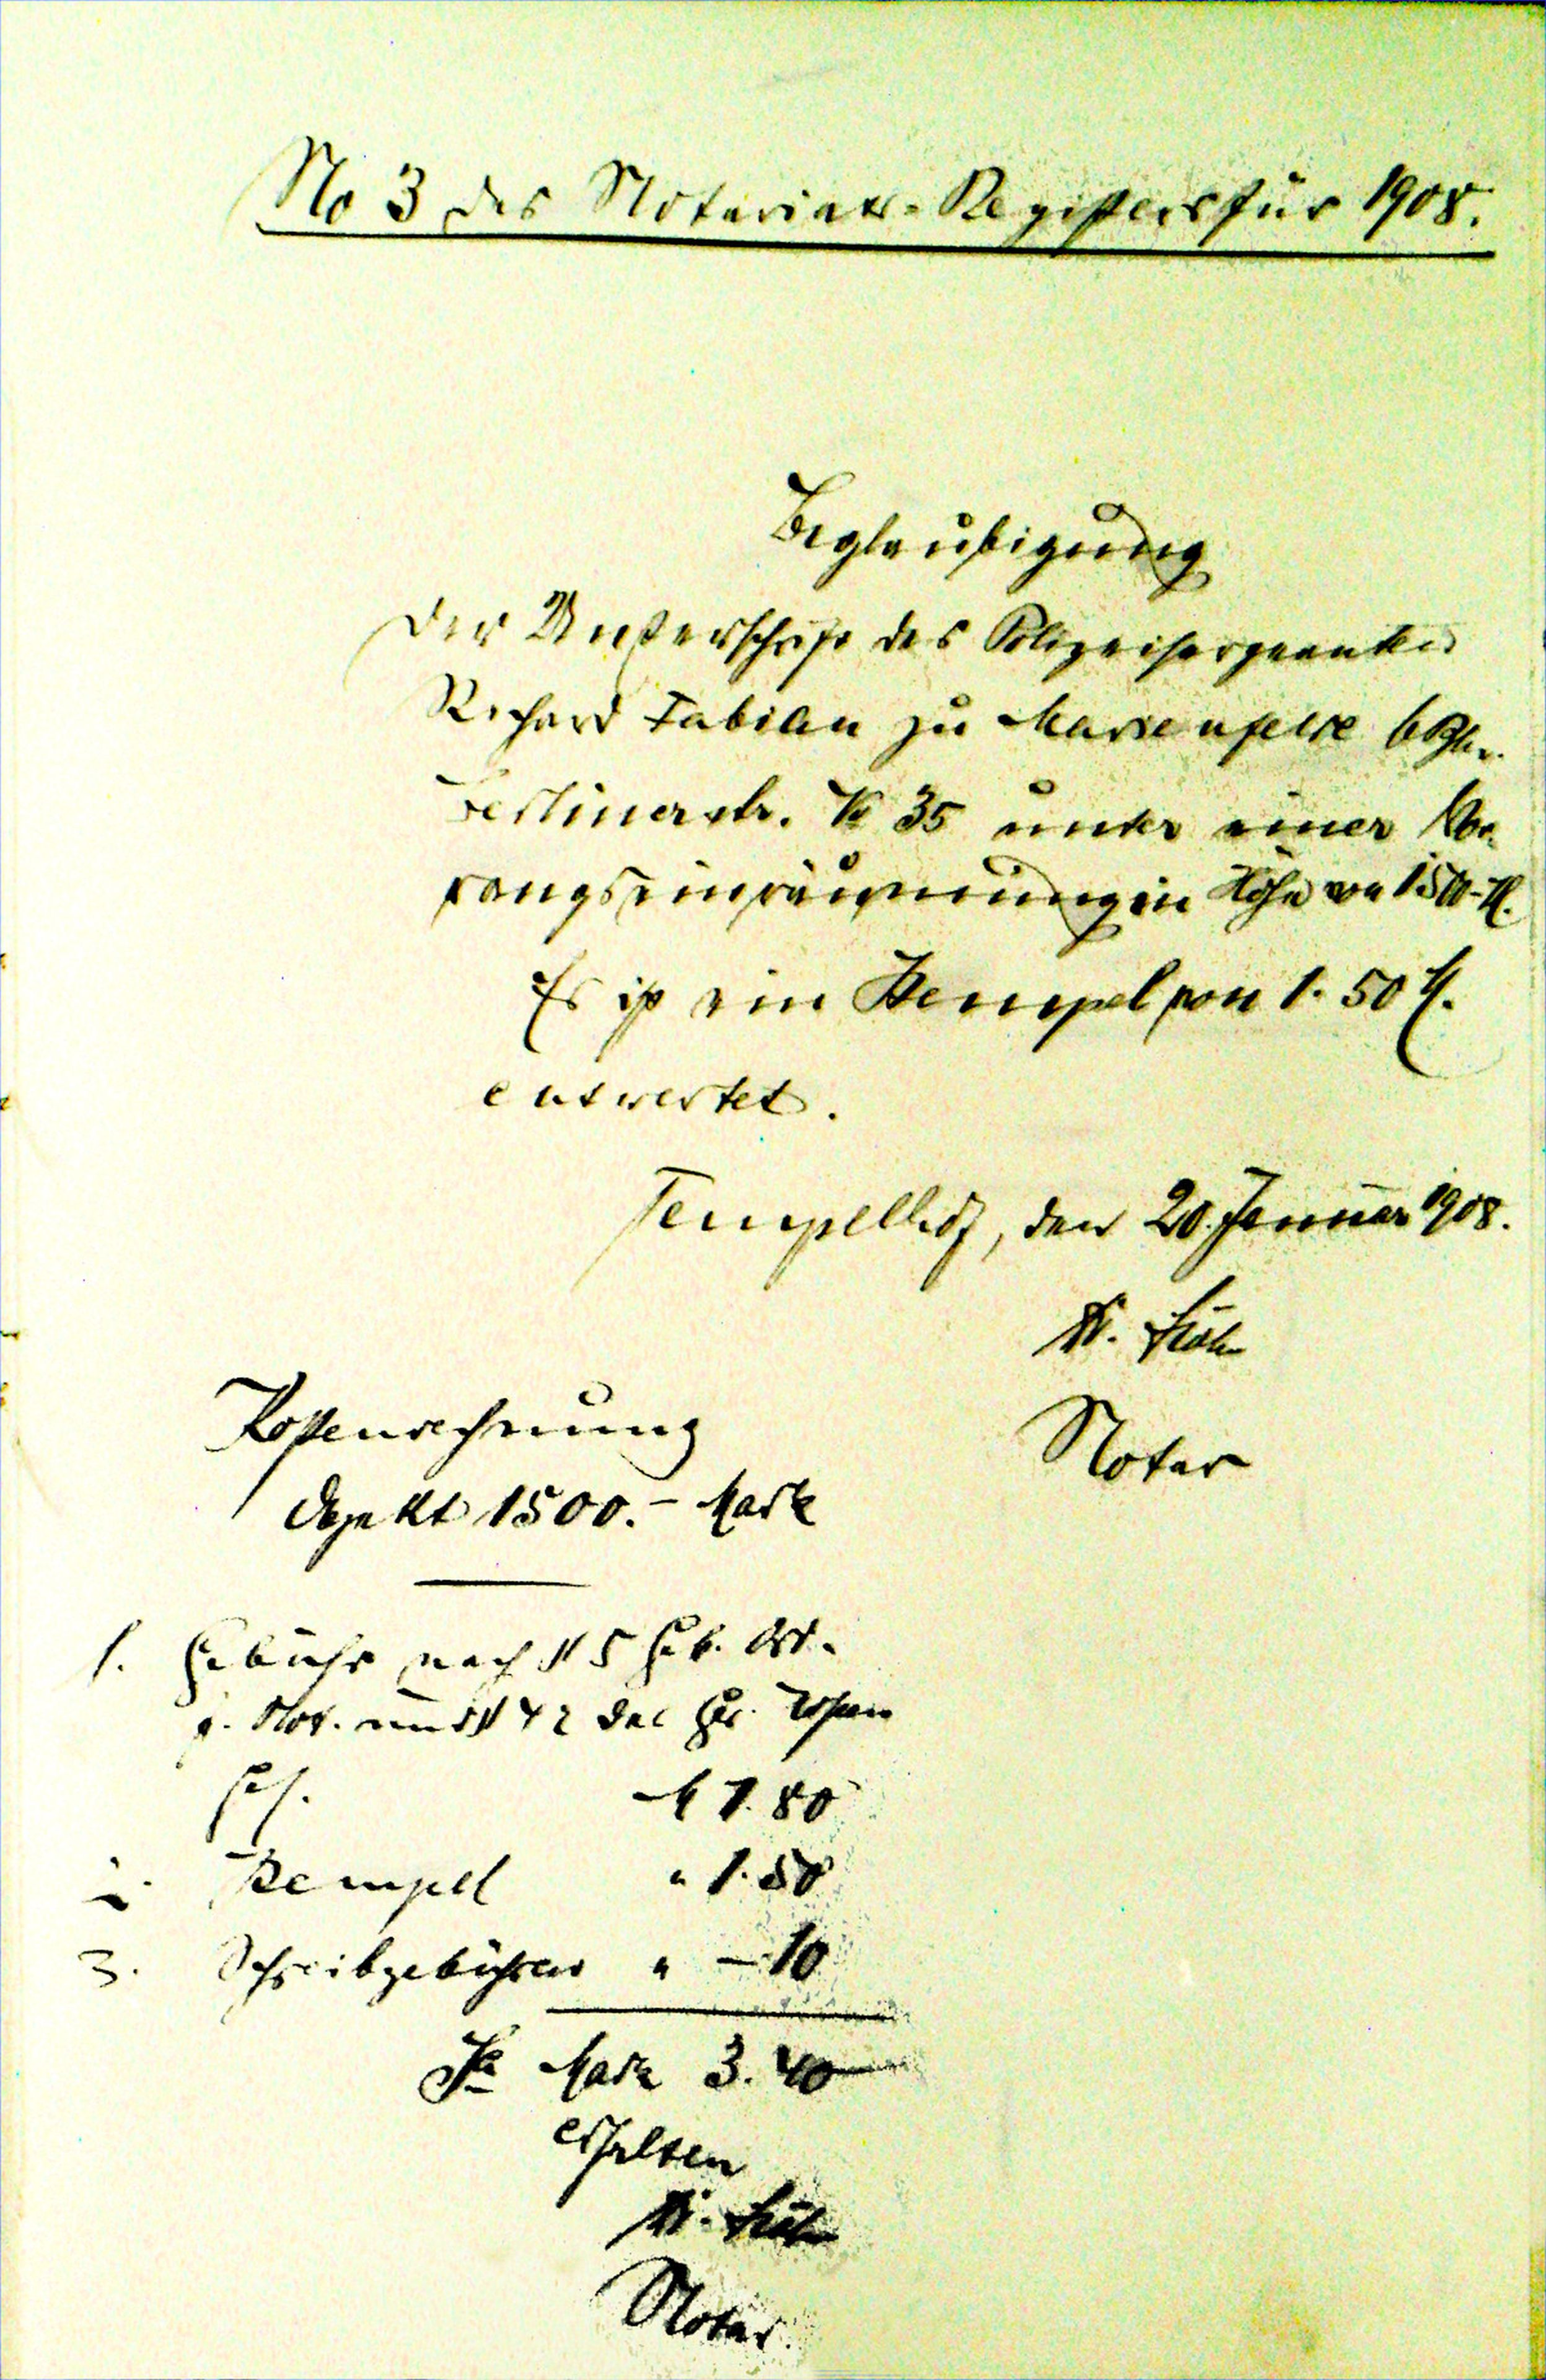 No 3 des Notariats-Registers für 1908.
Beglaubigung
der Unterschrift des Polizeisergeanten
Richard Fabian zu Marienfelde b/Bln.
Berlinerstr. No 35 unter einer Vor-
rangseinräumung in Höhe von 1500.- M.
Es ist ein Stempel von 1.50 M.
entwertet.
Tempelhof, den 20. Januar 1908.
Dr.
Notar
Kostenrechnung
Objekt 1500.- Mark
1. Gebühr nach § 5 Geb. Ord.
f. Not. und § 42 des Gr.
Ges. M 1.80
2. Stempel " 1.50
3. Schreibgebühren " -10
Sa Mark 3.40
erhalten
Dr.
Notar.